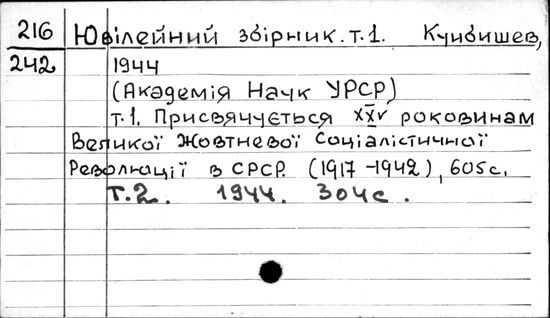 216 Ювілейний збірник. т.1. Куибишев,
242 1944
(Академія Наук УРСР)
т.1. Присвячується XXV роковинам
Великої Жовтневої Соціалістичної
Революції в СРСР. (1917-1942), 605с.
т.2. 1944. 304с.